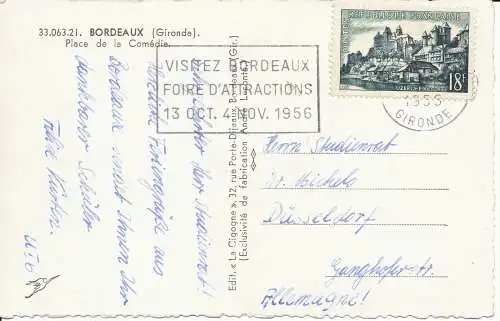 33.063.21. BORDEAUX (Gironde).
Place de la Comédie.
VISITEZ BORDEAUX
FOIRE D'ATTRACTIONS
13 OCT. 4 NOV. 1956
REPUBLIQUE FRANÇAISE
18F
GIRONDE
Edit. « La Cigogne », 32, rue Porte-Dijeaux, Bordeaux (Gir.)
(Exclusivité de fabrication André Leconte)
Herr Studienrat!
Feriengrüße aus
Bordeaux sendet Ihnen Ihr
dankbarer Schüler
Herrn Studienrat
Dr. Michels
Düsseldorf
Ganghoferstr.
Allemagne!